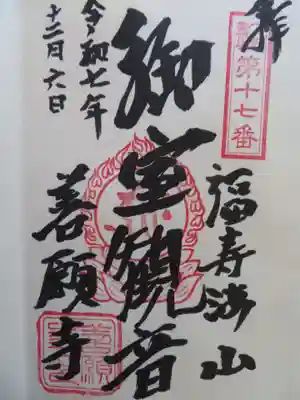 拜
第十七番
福寿海山
御室観音
善願寺
令和七年
十二月六日